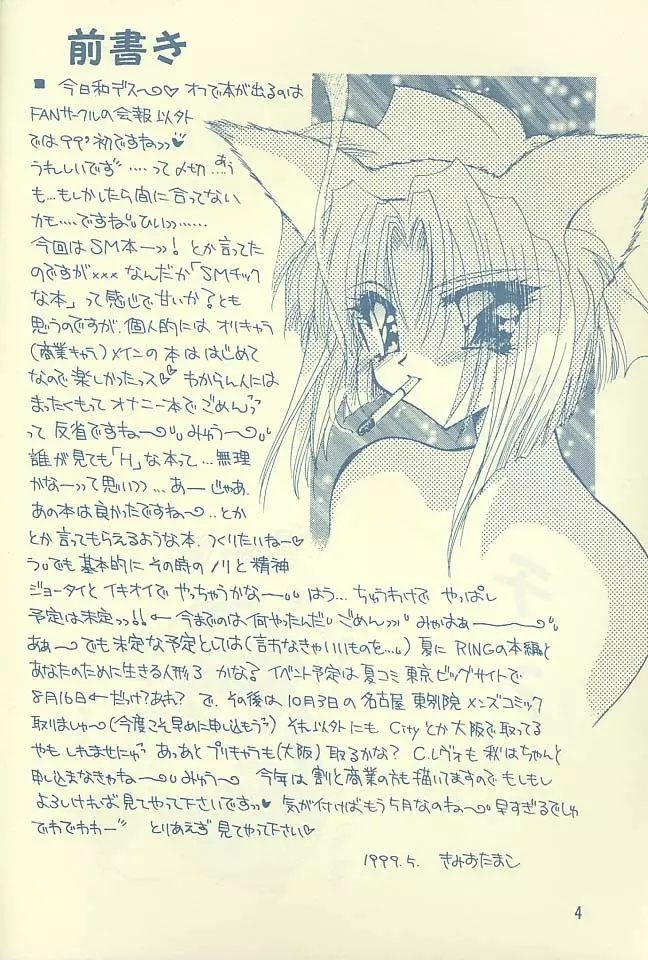 前書き
■ 今日和デス〜♡ オフで本が出るのは
FANサークルの会報以外
では99'初ですねッッ♥
うれしいです゛‥‥って〆切‥あう
も…もしかしたら間に合ってない
かも‥‥ですね〟ひいッッ……
今回はSM本ーッッ! とか言ってた
のですが××× なんだか「SMチック
な本」って感じで甘いか?とも
思うのですが、個人的にはオリキャラ
(商業キャラ)メインの本ははじめて
なので楽しかったっス♡ わからん人には
まったくもってオナニー本でごめんっ
って反省ですね〜〟みゅう〜〟
誰が見ても「H」な本って…無理
かなーって思いッッ…あーじゃあ、
あの本は良かったですね〜‥とか
とか言ってもらえるような本、つくりたいね〜♡
う〟でも基本的にその時のノリと精神
ジョータイとイキオイでやっちゃうかな〜〟 はう…ちゅうわけで やっぱし
予定は未定ッッ!! ← 今までのは何やったんだ〟ごめんッッ みゃはぁー〟
あぁ〜 でも未定な予定としては(言わなきゃいいものを…)夏にRINGの本編と
あなたのために生きる人形3 かな? イベント予定は夏コミ東京ビッグサイトで
8月16日←だっけ?あれ? で、その後は10月3日の名古屋 東別院メンズコミック
取りましゅ〜(今度こそ早めに申し込もうっ) それ以外にも Cityとか大阪で取ってる
やもしれませにゃっ あっあとプリキャラも(大阪)取るかな? C.レヴォも秋はちゃんと
申し込まなきゃね〜〟みゅう〜〟 今年は割と商業の方も描いてますのでもしもし
よろしければ見てやって下さいですッッ♥ 気が付けばもう5月なのね〜〟早すぎるでしゅ
でわでわわー〟 とりあえず見てやって下さい♡
1999.5. きみおたまこ
4